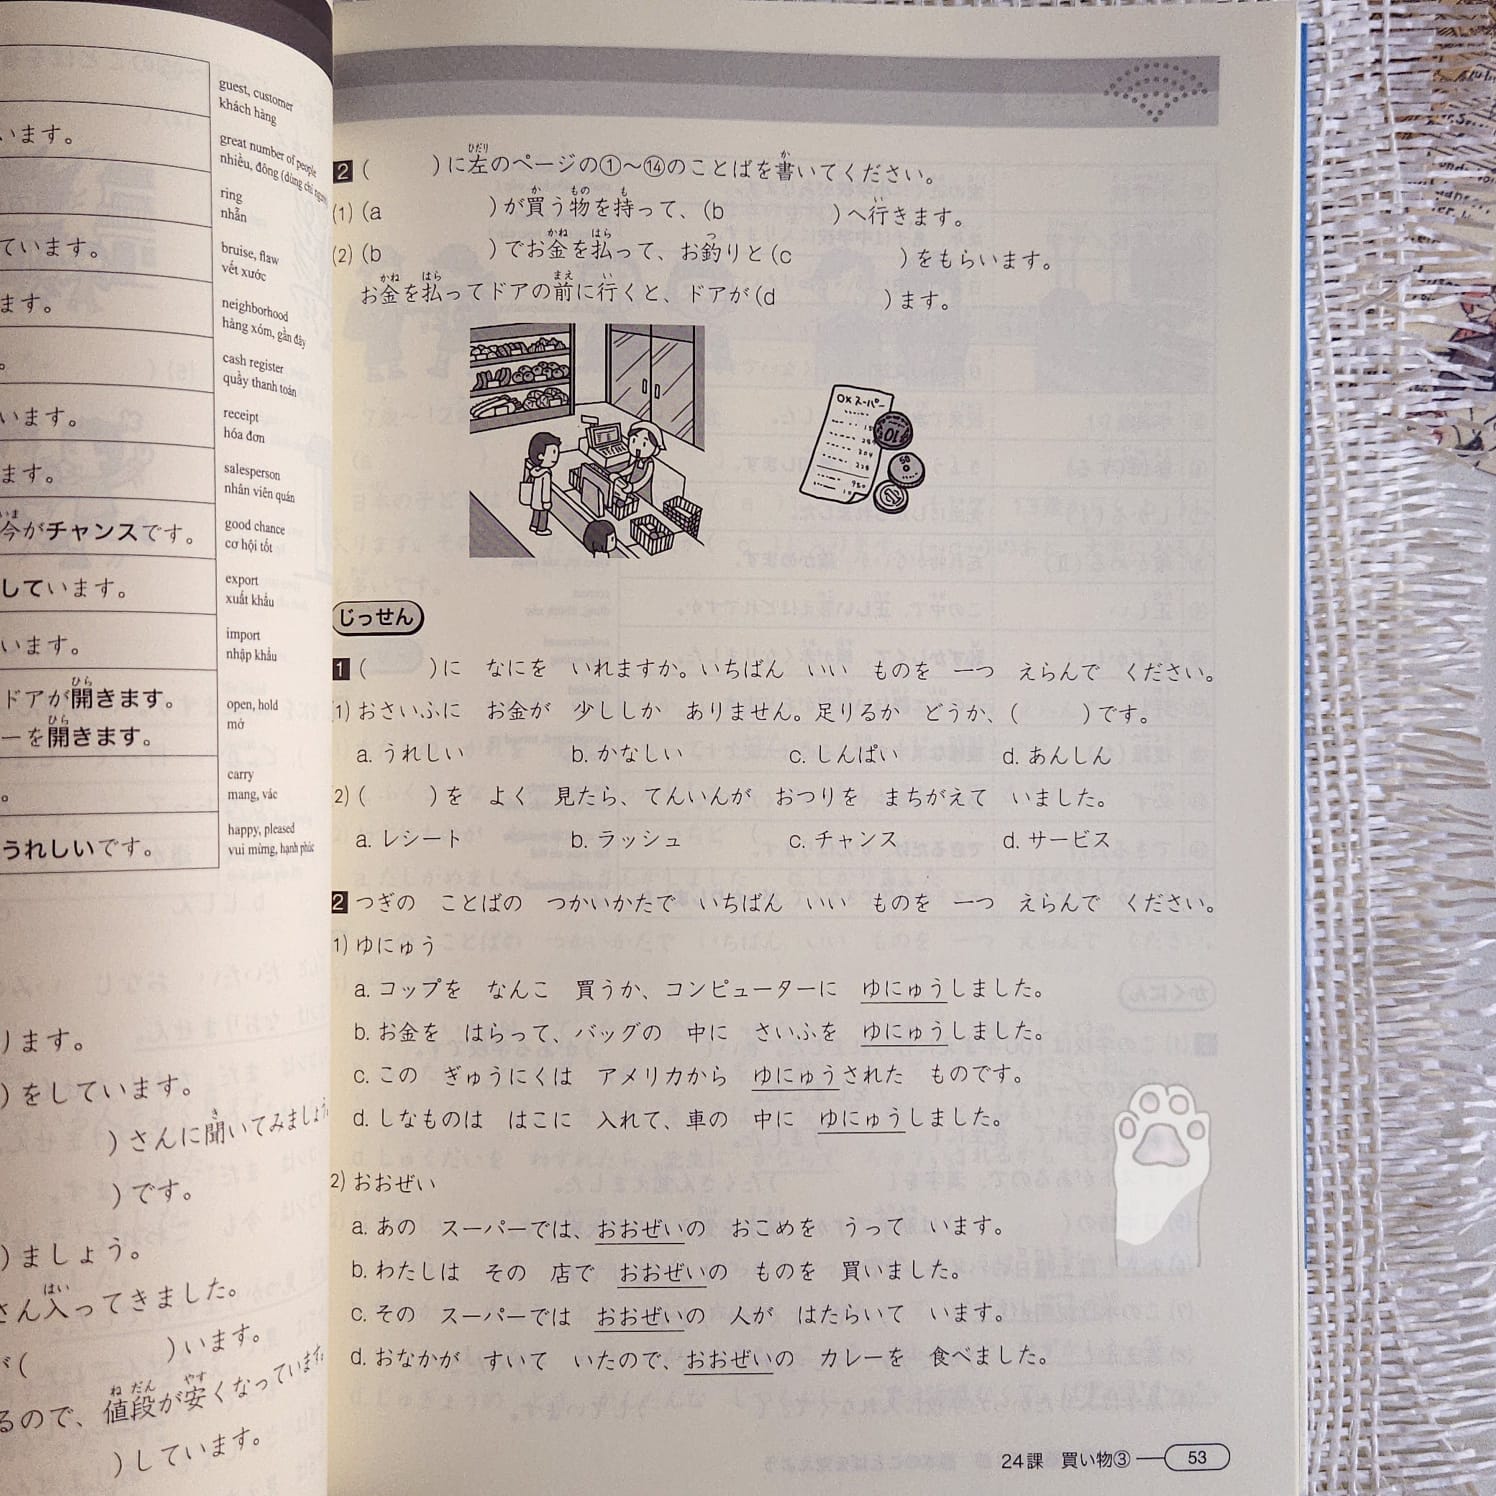 guest, customer
khách hàng
います。
great number of people
nhiều, đông (dùng chỉ
ring
nhẫn
ています。
bruise, flaw
vết xước
ます。
neighborhood
hàng xóm, gần đây
。
cash register
quầy thanh toán
います。
receipt
hóa đơn
ます。
salesperson
nhân viên quán
今がチャンスです。
good chance
cơ hội tốt
しています。
export
xuất khẩu
います。
import
nhập khẩu
ドアが開きます。
ーを開きます。
open, hold
mở
。
carry
mang, vác
うれしいです。
happy, pleased
vui mừng, hạnh phúc
ります。
)をしています。
)さんに聞いてみましょう
)です。
)ましょう。
さん入ってきました。
が( )います。
るので、値段が安くなっています
)しています。
2 ( )に左のページの①〜⑭のことばを書いてください。
(1) (a )が買う物を持って、(b )へ行きます。
(2) (b )でお金を払って、お釣りと(c )をもらいます。
お金を払ってドアの前に行くと、ドアが(d )ます。
OXスーパー
じっせん
1 ( )に なにを いれますか。いちばん いい ものを 一つ えらんで ください。
1) おさいふに お金が 少ししか ありません。足りるか どうか、( )です。
a. うれしい b. かなしい c. しんぱい d. あんしん
2) ( )を よく 見たら、てんいんが おつりを まちがえて いました。
a. レシート b. ラッシュ c. チャンス d. サービス
2 つぎの ことばの つかいかたで いちばん いい ものを 一つ えらんで ください。
1) ゆにゅう
a. コップを なんこ 買うか、コンピューターに ゆにゅうしました。
b. お金を はらって、バッグの 中に さいふを ゆにゅうしました。
c. この ぎゅうにくは アメリカから ゆにゅうされた ものです。
d. しなものは はこに 入れて、車の 中に ゆにゅうしました。
2) おおぜい
a. あの スーパーでは、おおぜいの おこめを うって います。
b. わたしは その 店で おおぜいの ものを 買いました。
c. その スーパーでは おおぜいの 人が はたらいて います。
d. おなかが すいて いたので、おおぜいの カレーを 食べました。
24課 買い物③ 53